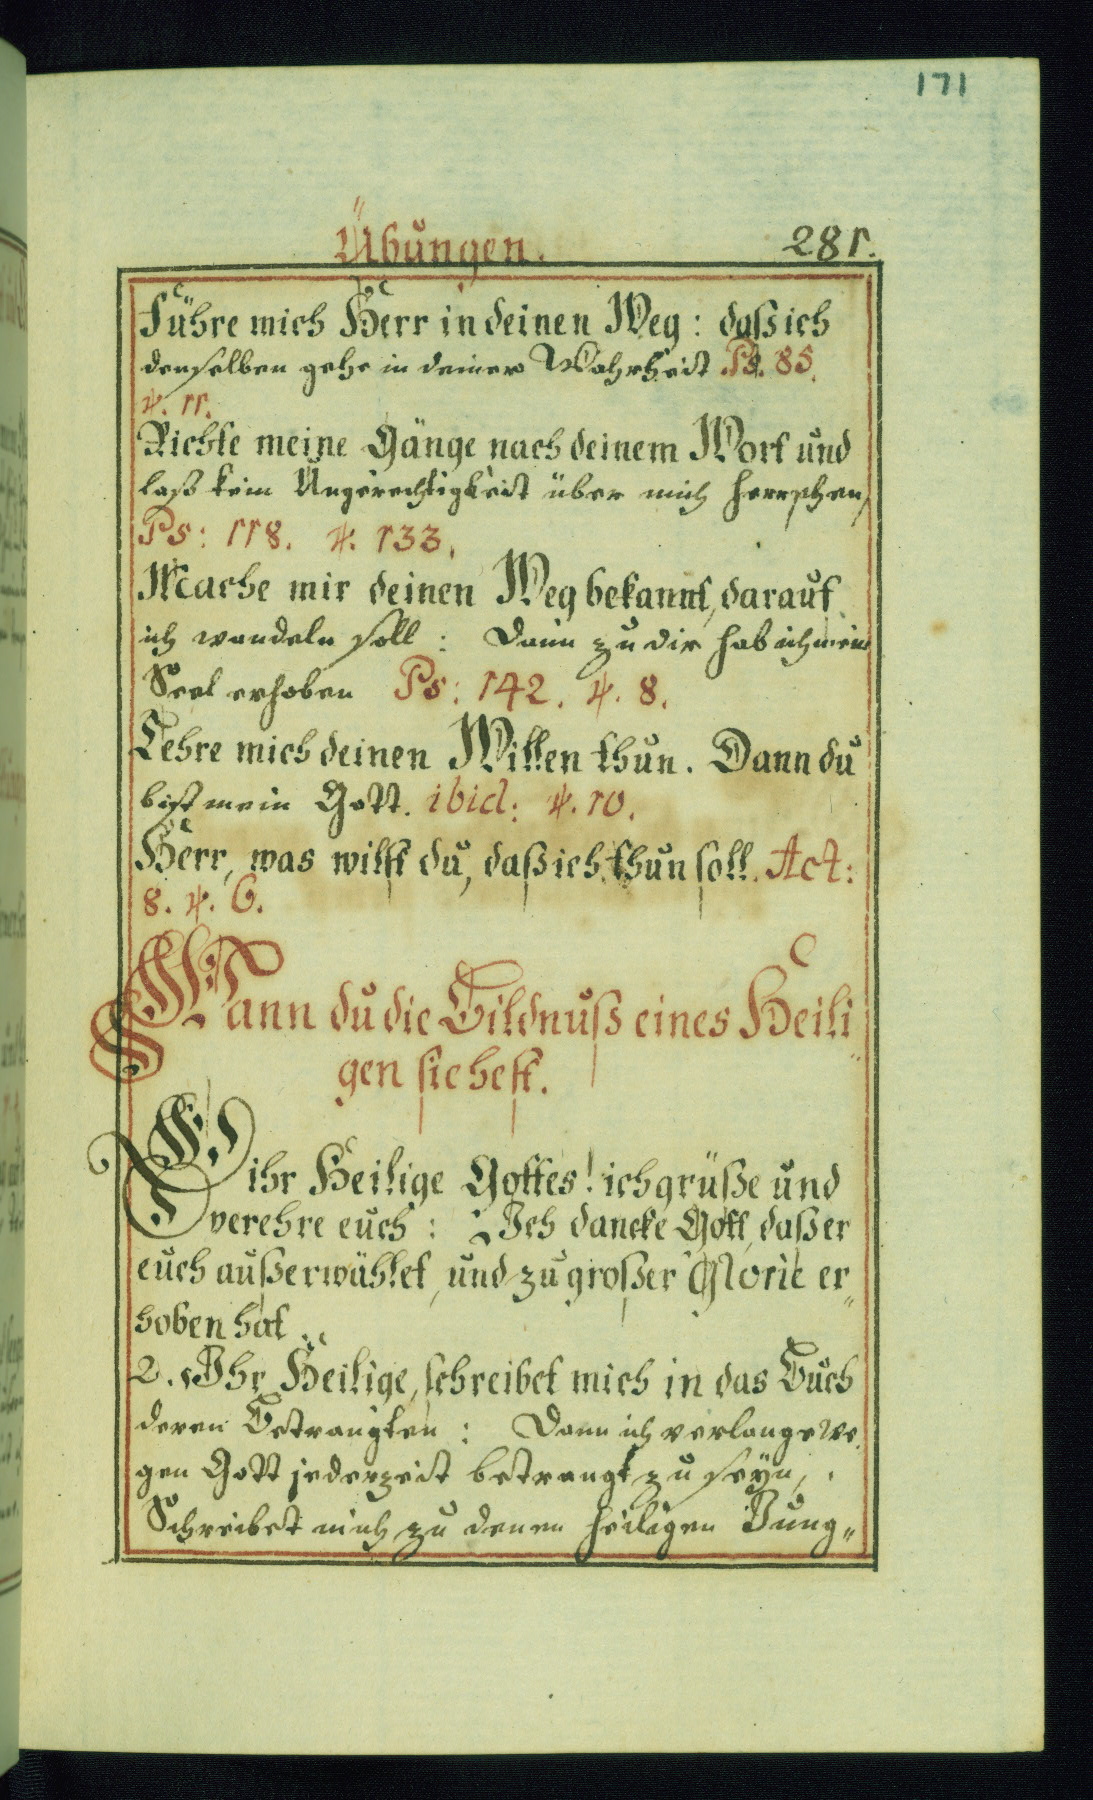 171
Übungen. 281.
Führe mich Herr in deinen Weg: daß ich
denselben gehe in deiner Wahrheit Ps. 85.
℣. 11.
Richte meine Gänge nach deinem Wort und
laß kein Ungerechtigkeit über mich herrschen,
Ps: 118. ℣. 133.
Mache mir deinen Weg bekannt, darauf
ich wandeln soll: Dann zu dir hab ich mein
Seel erhoben Ps: 142. ℣. 8.
Lehre mich deinen Willen thun. Dann du
bist mein Gott. ibid: ℣. 10.
Herr, was wilst du, daß ich thun soll. Act:
8. ℣. 6.
Wann du die Bildnuß eines Heili„
gen siehest.
O ihr Heilige Gottes! ich grüße und
verehre euch: Ich dancke Gott, daß er
euch außerwählet, und zu großer Glorie er„
hoben hat.
2. Ihr Heilige, schreibet mich in das Buch
deren Betrangten: Dann ich verlange we„
gen Gott jederzeit betrangt zu seyn,
Schreibet mich zu denen heiligen Jung„